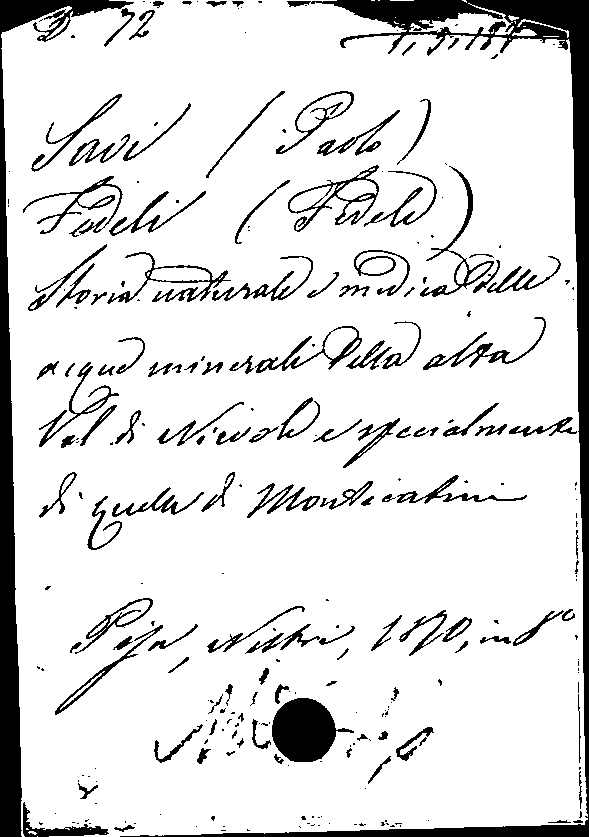 D. 72
Savi (Paolo)
Fedeli (Fedele)
Storia naturale e medica delle
acque minerali della alta
Val di Nievole e specialmente
di quelle di Montecatini
Pisa, Nistri, 1870, in 8º